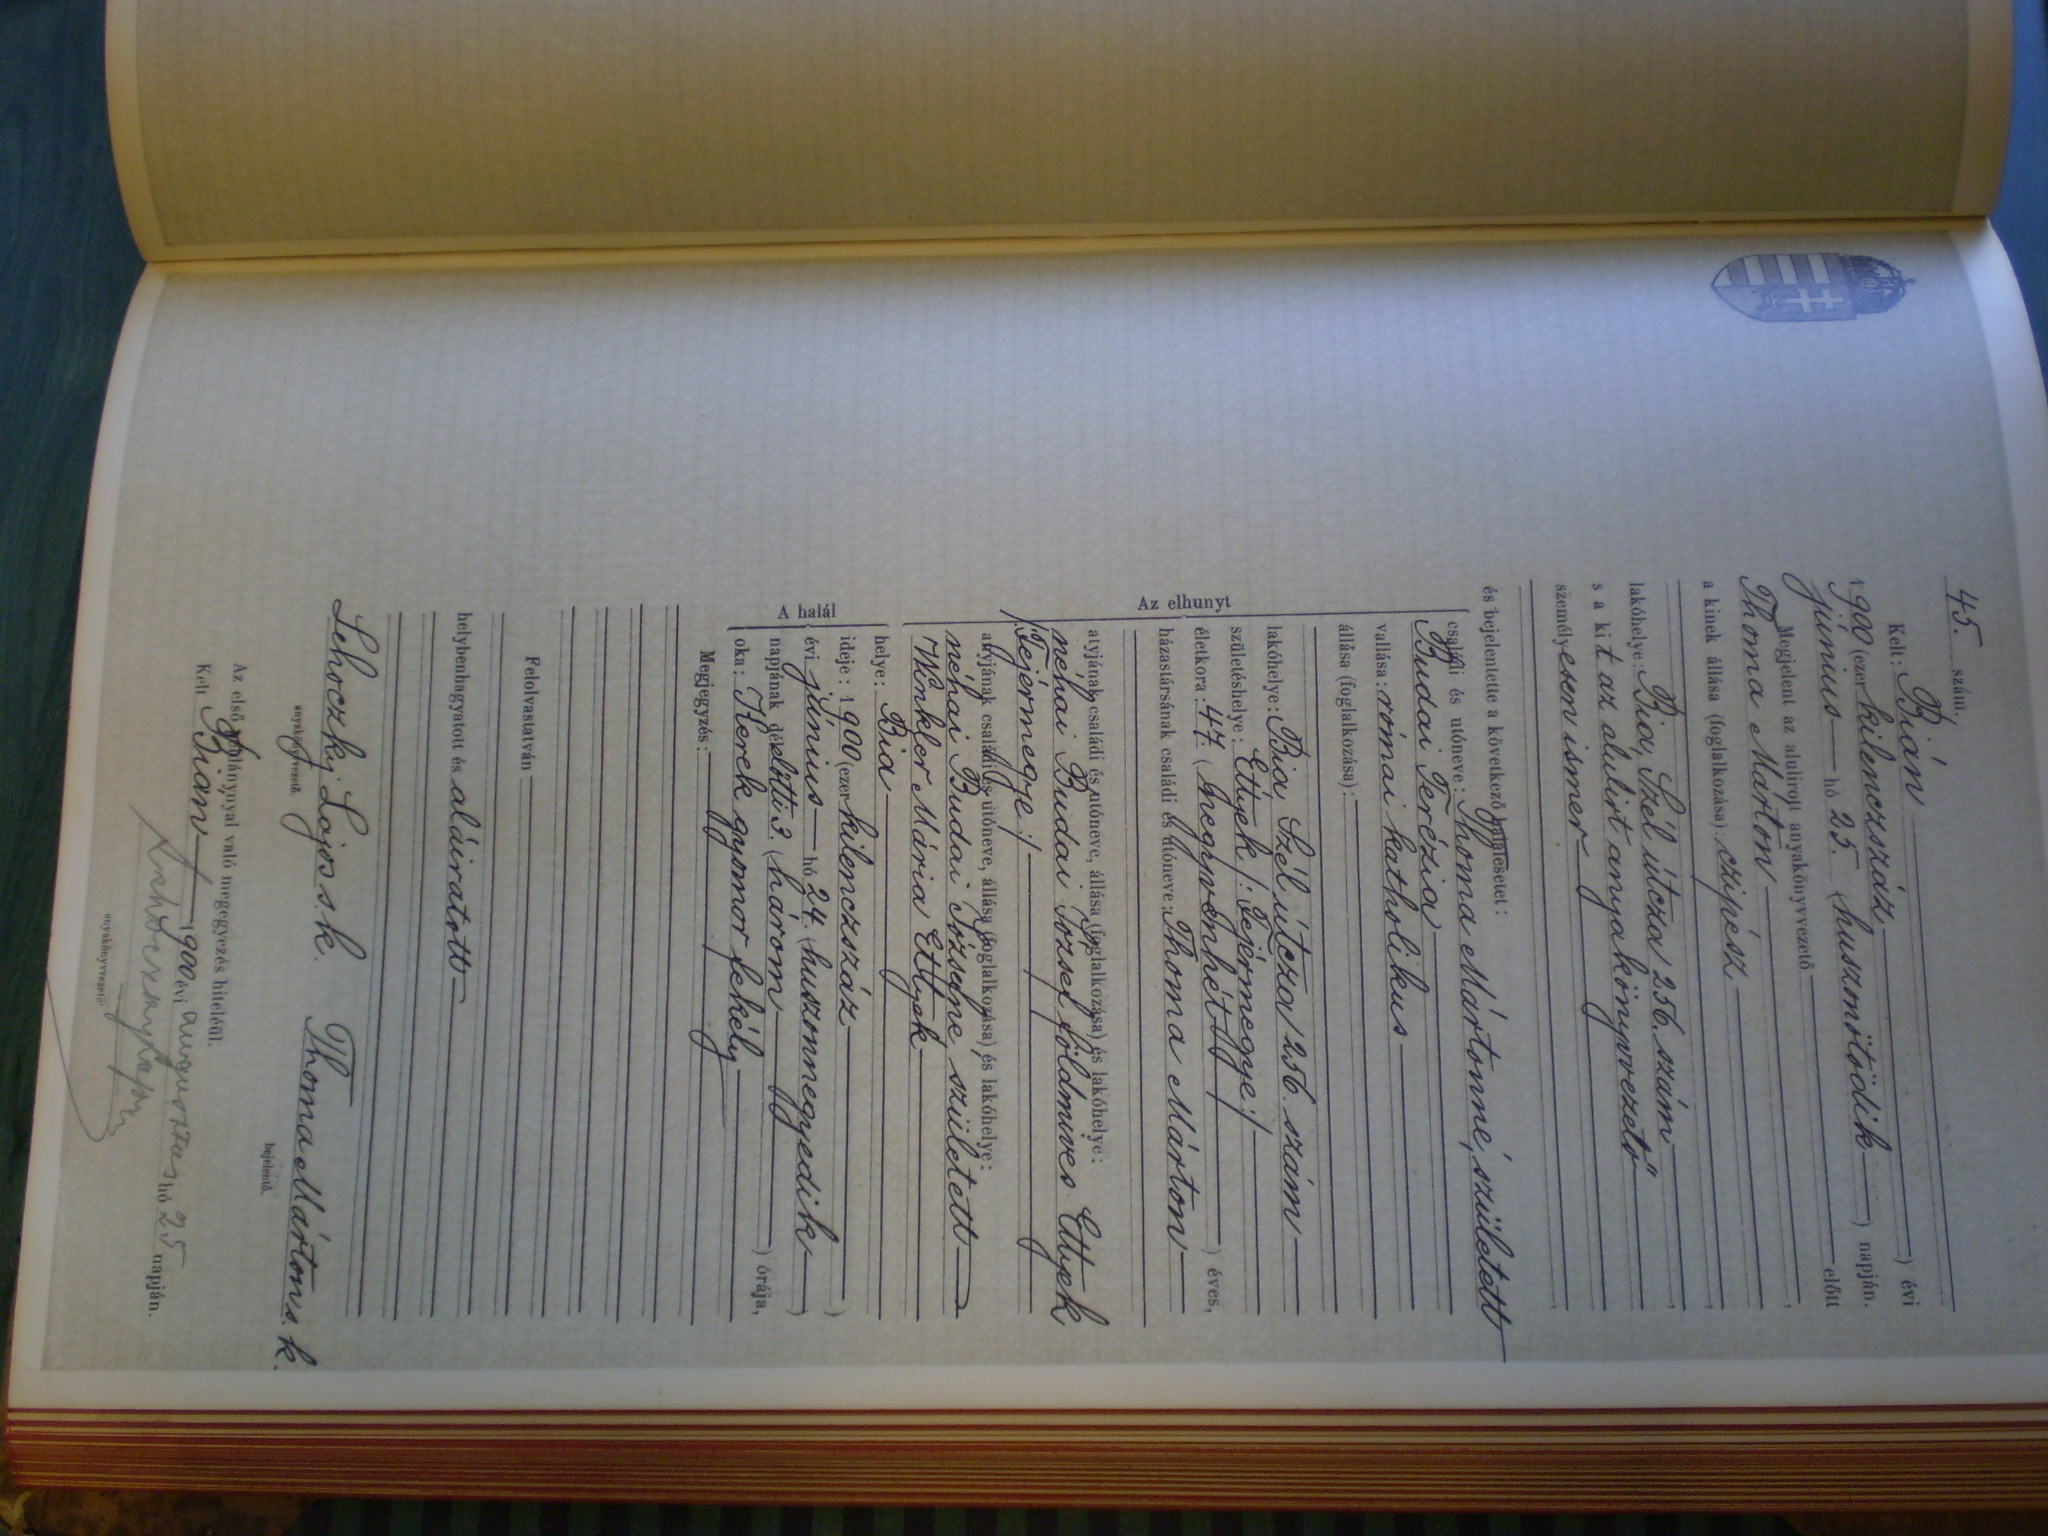 45. szám.
Kelt: Bián
1900 (ezer kilenczszáz ) évi
június hó 25. (huszonötödik ) napján.
Megjelent az alulirott anyakönyvvezető előtt
Thoma Márton,
a kinek állása (foglalkozása): czipész,
lakóhelye: Bia, Szél útcza 256. szám,
s a kit az alulirt anyakönyvvezető
személyesen ismer,
és bejelentette a következő halálesetet:
Az elhunyt
családi és utóneve: Thoma Mártonné, született
Budai Terézia
vallása: római katholikus
állása (foglalkozása):
lakóhelye: Bia Szél útcza 256. szám
születéshelye: Ettyek /: Fejérmegye :/
életkora: 47. (negyvenhét ) éves,
házastársának családi és utóneve: Thoma Márton
atyjának családi és utóneve, állása (foglalkozása) és lakóhelye:
néhai Budai József földmives Ettyek
/: Fejérmegye :/
anyjának családi és utóneve, állása (foglalkozása) és lakóhelye:
néhai Budai Józsefne született
Winkler Mária Ettyek
A halál
helye: Bia
ideje: 1900 (ezer kilenczszáz )
évi június hó 24. (huszonnegyedik )
napjának délelőtti 3. (három ) órája,
oka: Kerek gyomor fekély
Megjegyzés:
Felolvastatván
helybenhagyatott és aláiratott
Lehoczky Lajos s.k. Thoma Márton s. k.
anyakönyvvezető. bejelentő.
Az első példánynyal való megegyezés hiteléül.
Kelt Bián 1900 évi augusztus hó 25 napján.
Lehoczky Lajos
anyakönyvvezető.